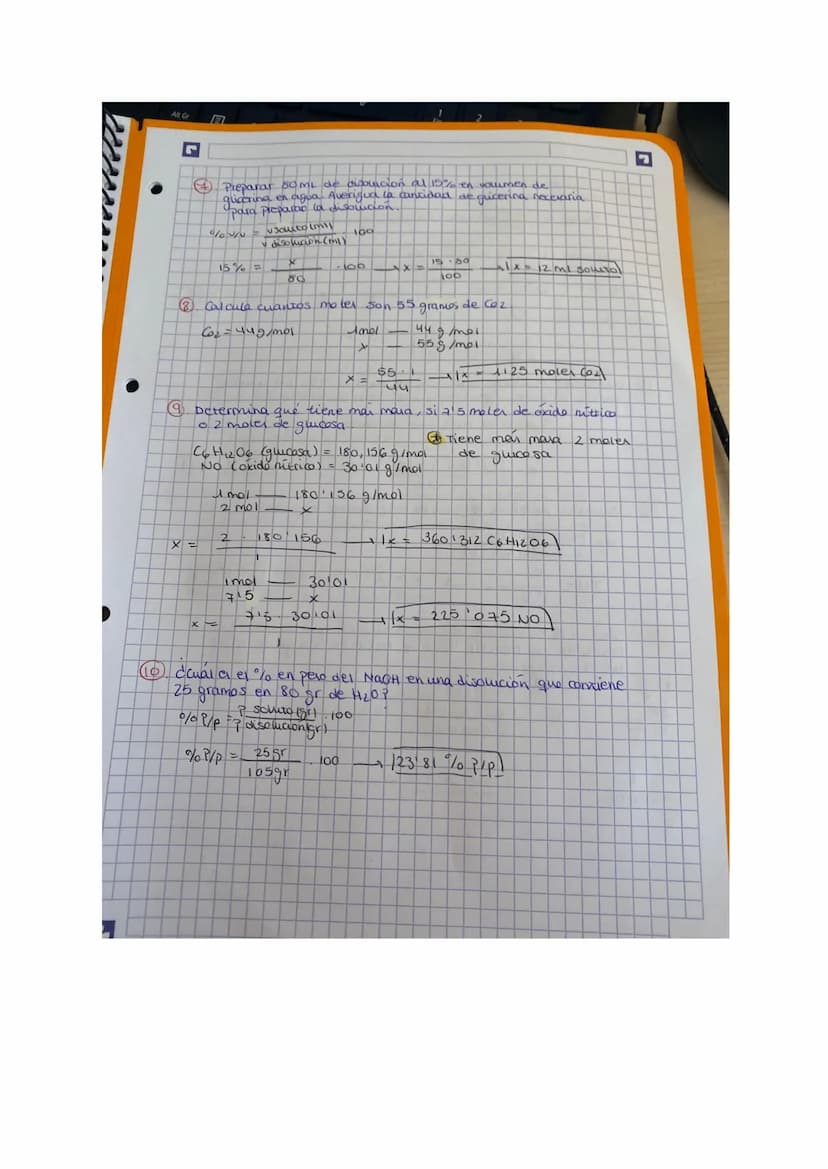 Alt Gr
1
2
7. Preparar 80 mL de disolución al 15% en volumen de
glicerina en agua. Averigua la cantidad de glicerina necesaria
para preparar la disolución.
% v/v = v soluto (ml) / v disolución (ml) · 100
15% = x / 80 · 100 → x = 15 · 80 / 100 → x = 12 ml soluto
8. Calcula cuantos moles son 55 gramos de CO2
CO2 = 44 g/mol
1mol — 44 g/mol
x — 55 g/mol
x = 55 · 1 / 44 → x = 1'25 moles CO2
9. Determina qué tiene más masa, si 7'5 moles de óxido nítrico
o 2 moles de glucosa
C6H12O6 (glucosa) = 180,156 g/mol
NO (óxido nítrico) = 30'01 g/mol
Tiene más masa 2 moles
de glucosa
1mol — 180'156 g/mol
2 mol — x
x = 2 · 180'156 / 1 → x = 360'312 C6H12O6
1mol — 30'01
7'5 — x
x = 7'5 · 30'01 / 1 → x = 225'075 NO
10. ¿Cuál es el % en peso del NaOH en una disolución que contiene
25 gramos en 80 gr de H2O?
% P/p = P soluto (gr) / P disolución (gr) · 100
% P/p = 25gr / 105gr · 100 → 23'81 % P/p